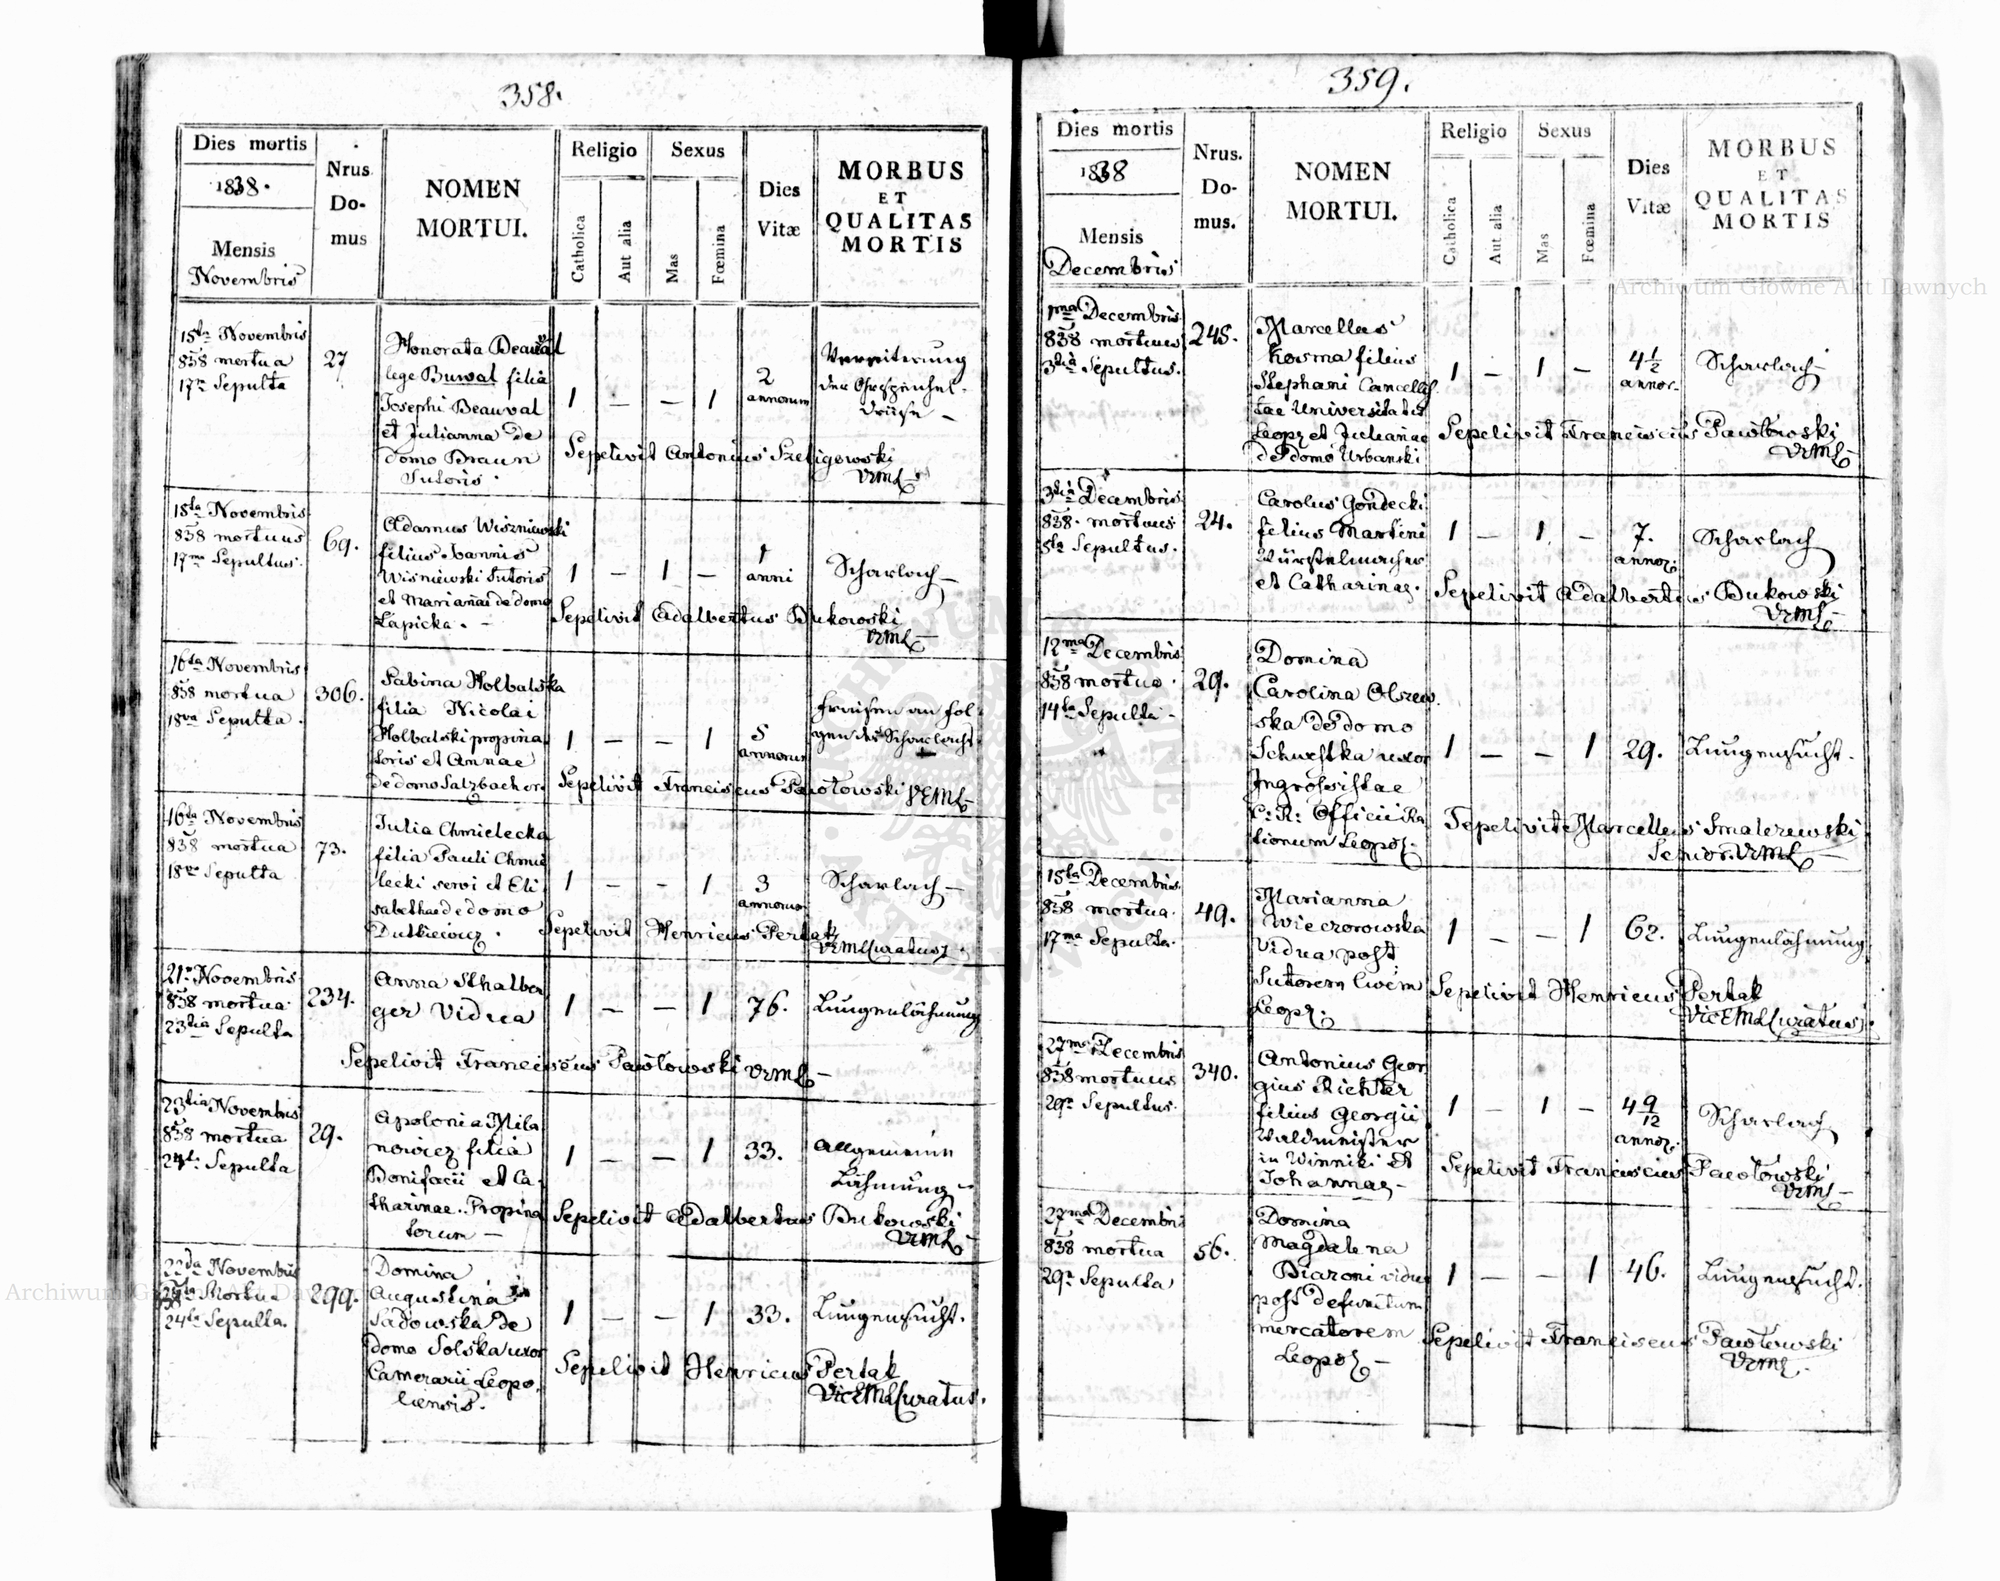 358.
Dies mortis
1838.
Mensis
Novembris
Nrus
Do-
mus
NOMEN
MORTUI.
Religio
Catholica
Aut alia
Sexus
Mas
Fœmina
Dies
Vitæ
MORBUS
ET
QUALITAS
MORTIS
15ta Novembris
838 mortua
17a Sepulta
27
Honorata Beauval
lege Buwal filia
Josephi Beauval
et Julianna de
domo Braun
Sutoris.
1 — — 1
2
annorum
Vereiterung
der Ohrspeichel-
drüse —
Sepelivit Antonius Szeligowski
VEML
15ta Novembris
838 mortuus
17ma Sepultus.
69.
Adamus Wiszniewski
filius Joannis
Wiśniewski Sutoris
et Mariañae de domo
Łapicka. —
1 — 1 —
1
anni
Scharlach —
Sepelivit Adalbertus Bukowski
VEML —
16ta Novembris
838 mortua
18va Sepulta.
306.
Sabina Holbalska
filia Nicolai
Holbalski propina
toris et Annae
de domo Salzbacher
1 — — 1
5
annorum
Fraisen an Fol-
gen des Scharlachs.
Sepelivit Franciscus Pawłowski VEML
16ta Novembris
838 mortua
18va Sepulta
73.
Julia Chmielecka
filia Pauli Chmie
lecki servi et Eli
sabethae de domo
Dutkiewicz.
1 — — 1
3
annorum
Scharlach —
Sepelivit Henricus Pertak
VEML Curatus.
21a Novembris
838 mortua
23tia Sepulta
234.
Anna Sthalber
ger Vidua
1 — — 1
76.
Lungenlähmung
Sepelivit Franciscus Pawłowski VEML —
23tia Novembris
838 mortua
24ta Sepulta
29.
Apolonia Mila
nowicz filia
Bonifacii et Ca-
tharinae. Propina
torum —
1 — — 1
33.
Allgemeine
Lähmung —
Sepelivit Adalbertus Bukowski
VEML —
22da Novembris
Mortua
24ta Sepulta.
299.
Domina
Augustina
Sadowska de
domo Solska uxor
Camerarii Leopo-
liensis.
1 — — 1
33.
Lungensucht.
Sepelivit Henricus Pertak
VicEML Curatus.
359.
Dies mortis
1838
Mensis
Decembris
Nrus.
Do-
mus.
NOMEN
MORTUI.
Religio
Catholica
Aut alia
Sexus
Mas
Fœmina
Dies
Vitæ
MORBUS
ET
QUALITAS
MORTIS
1ma Decembris
838 mortuus
3tia Sepultus.
245.
Marcellus
Kosma filius
Stephani Cancellis
tae Universitatis
Leopz et Julianae
de domo Urbanski
1 — 1 —
4 1/2
annor.
Scharlach —
Sepelivit Franciscus Pawłowski
VEML —
3tia Decembris
838. mortuus
5ta Sepultus.
24.
Carolus Gondecki
filius Martini
Würstelmacher
et Catharinae.
1 — 1. —
7.
annor.
Scharlach
Sepelivit Adalbertus Bukowski
VEML —
12ma Decembris
838 mortua.
14ta Sepulta -
29.
Domina
Carolina Olszew
ska de domo
Schwestka uxor
Ingrossistae
C: R: Officii Ra
tionum Leopol.
1 — — 1
29.
Lungensucht.
Sepelivit Marcellus Smalczewski
Senior. VEML —
15ta Decembris
838 mortua.
17ma Sepulta.
49.
Marianna
Wieczorowska
Vidua post
Sutorem Civem
Leopz.
1 — — 1
62.
Lungenlähmung
Sepelivit Henricus Pertak
VicEML Curatus.
27ma Decembris
838 mortuus
29a Sepultus.
340.
Antonius Geor
gius Richter
filius Georgii
Waldmeister
in Winniki et
Johannae —
1 — 1 —
4 9/12
annor.
Scharlach
Sepelivit Franciscus Pawłowski
VEML —
27ma Decembris
838 mortua
29a Sepulta
56.
Domina
Magdalena
Diaroni vidua
post defunctum
mercatorem
Leopol —
1 — — 1
46.
Lungensucht.
Sepelivit Franciscus Pawłowski
VEML.
Archiwum Główne Akt Dawnych